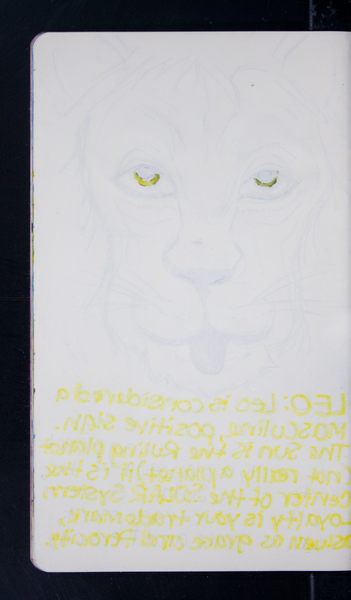 LEO: Leo is considered a
Masculine, positive sign.
The Sun is the Ruling planet
(not really a planet) it's the
center of the SOLAR System
Loyalty is your trademark,
as grace and ferocity.